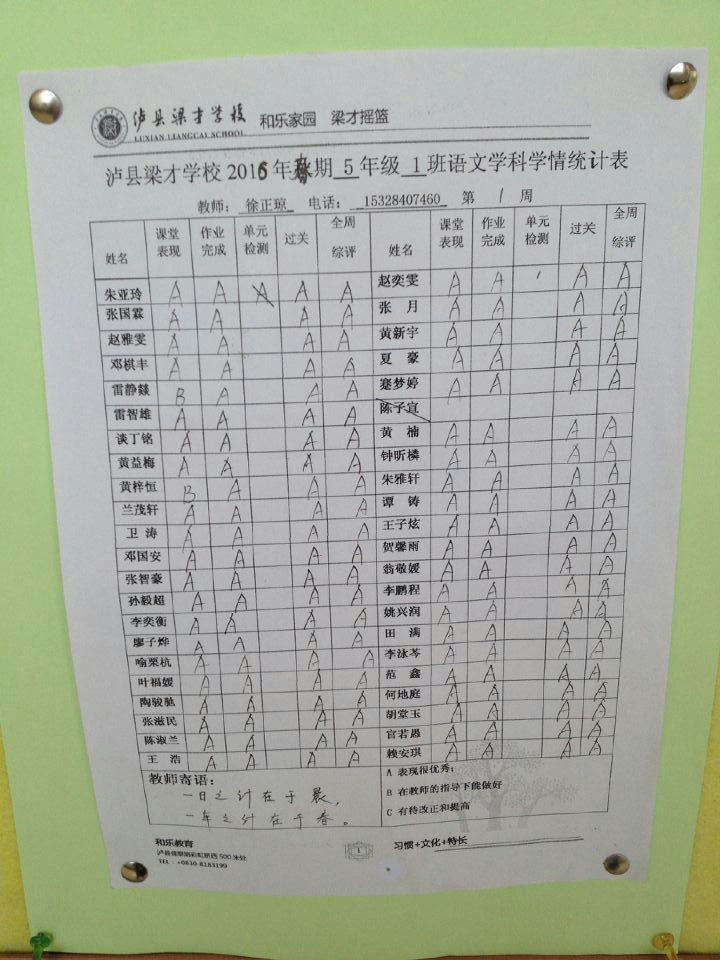 泸县梁才学校 和乐家园 梁才摇篮
LUXIAN LIANGCAI SCHOOL
泸县梁才学校2016年春期 5 年级 1 班语文学科学情统计表
教师: 徐正琼 电话: 15328407460 第 1 周
姓名 课堂表现 作业完成 单元检测 过关 全周综评 姓名 课堂表现 作业完成 单元检测 过关 全周综评
朱亚玲 A A A A A 赵奕雯 A A A A
张国霖 A A A A 张月 A A A A
赵雅雯 A A A A 黄新宇 A A A A
邓棋丰 A A A A 夏豪 A A A A
雷静燚 B A A A 蹇梦婷 A A A A
雷智雄 A A A A 陈子宣
谈丁铭 A A A A 黄楠 A A A A
黄益梅 A A A A 钟昕檎 A A A A
黄梓恒 B A A A 朱雅轩 A A A A
兰茂轩 A A A A 谭铸 A A A A
卫涛 A A A A 王子炫 A A A A
邓国安 A A A A 贺馨雨 A A A A
张智豪 A A A A 翁敬媛 A A A A
孙毅超 A A A A 李鹏程 A A A A
李奕衡 A A A A 姚兴润 A A A A
廖子烨 A A A A 田满 A A A A
喻栗杭 A A A A 李泳芩 A A A A
叶福媛 A A A A 范鑫 A A A A
陶骏驰 A A A A 何地庭 A A A A
张滋民 A A A A 胡堂玉 A A A A
陈淑兰 A A A A 官若愚 A A A A
王浩 A A A A 赖安琪 A A A A
教师寄语:
一日之计在于晨,
一年之计在于春。
A 表现很优秀;
B 在教师的指导下能做好
C 有待改正和提高
和乐教育
500 米处
TEL:+0830-8183199
1
习惯+文化+特长